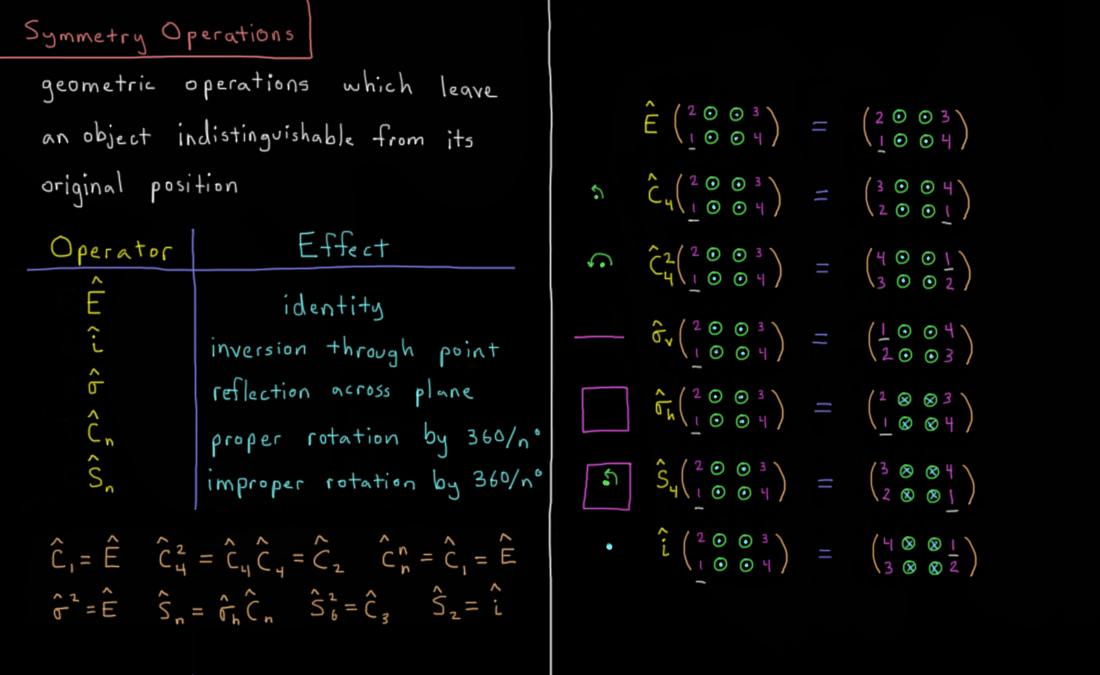 Symmetry Operations
geometric operations which leave
an object indistinguishable from its
original position
Operator Effect
Ê identity
î inversion through point
σ̂ reflection across plane
Ĉₙ proper rotation by 360/n°
Ŝₙ improper rotation by 360/n°
Ĉ₁ = Ê Ĉ₄² = Ĉ₄Ĉ₄ = Ĉ₂ Ĉₙⁿ = Ĉ₁ = Ê
σ̂² = Ê Ŝₙ = σ̂ₕĈₙ Ŝ₆² = Ĉ₃ Ŝ₂ = î
Ê ( 2 ⊙ ⊙ 3 ) = ( 2 ⊙ ⊙ 3 )
1 ⊙ ⊙ 4 1 ⊙ ⊙ 4
Ĉ₄ ( 2 ⊙ ⊙ 3 ) = ( 3 ⊙ ⊙ 4 )
1 ⊙ ⊙ 4 2 ⊙ ⊙ 1
Ĉ₄² ( 2 ⊙ ⊙ 3 ) = ( 4 ⊙ ⊙ 1 )
1 ⊙ ⊙ 4 3 ⊙ ⊙ 2
σ̂ᵥ ( 2 ⊙ ⊙ 3 ) = ( 1 ⊙ ⊙ 4 )
1 ⊙ ⊙ 4 2 ⊙ ⊙ 3
σ̂ₕ ( 2 ⊙ ⊙ 3 ) = ( 2 ⊗ ⊗ 3 )
1 ⊙ ⊙ 4 1 ⊗ ⊗ 4
Ŝ₄ ( 2 ⊙ ⊙ 3 ) = ( 3 ⊗ ⊗ 4 )
1 ⊙ ⊙ 4 2 ⊗ ⊗ 1
î ( 2 ⊙ ⊙ 3 ) = ( 4 ⊗ ⊗ 1 )
1 ⊙ ⊙ 4 3 ⊗ ⊗ 2